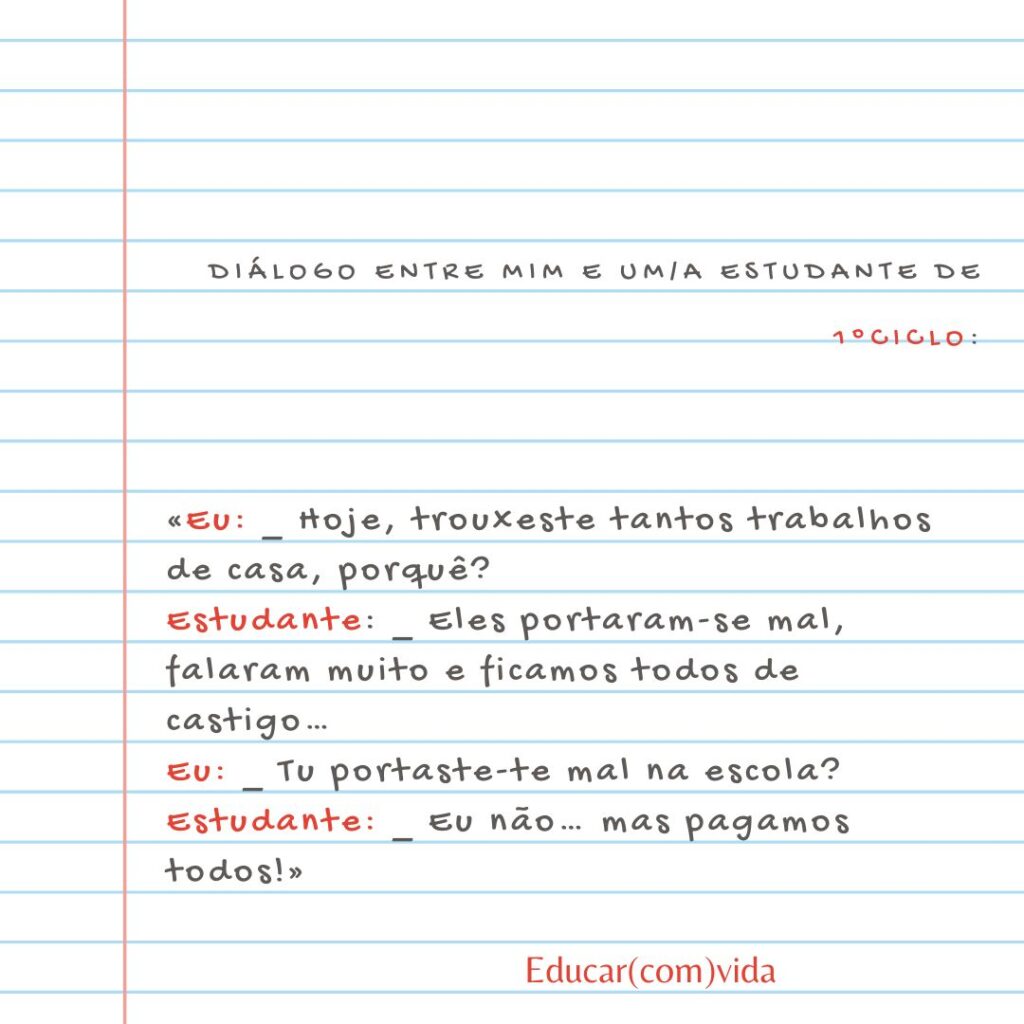 DIÁLOGO ENTRE MIM E UM/A ESTUDANTE DE
1ºCICLO:
«Eu: _ Hoje, trouxeste tantos trabalhos
de casa, porquê?
Estudante: _ Eles portaram-se mal,
falaram muito e ficamos todos de
castigo...
Eu: _ Tu portaste-te mal na escola?
Estudante: _ Eu não... mas pagamos
todos!»
Educar(com)vida